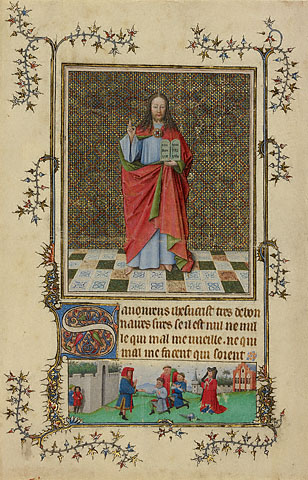 Sauoureus ihesucrist tres debon
naires sires se il est nul ne nul
le qui mal me vueille. ne qui
mal me facent qui soient